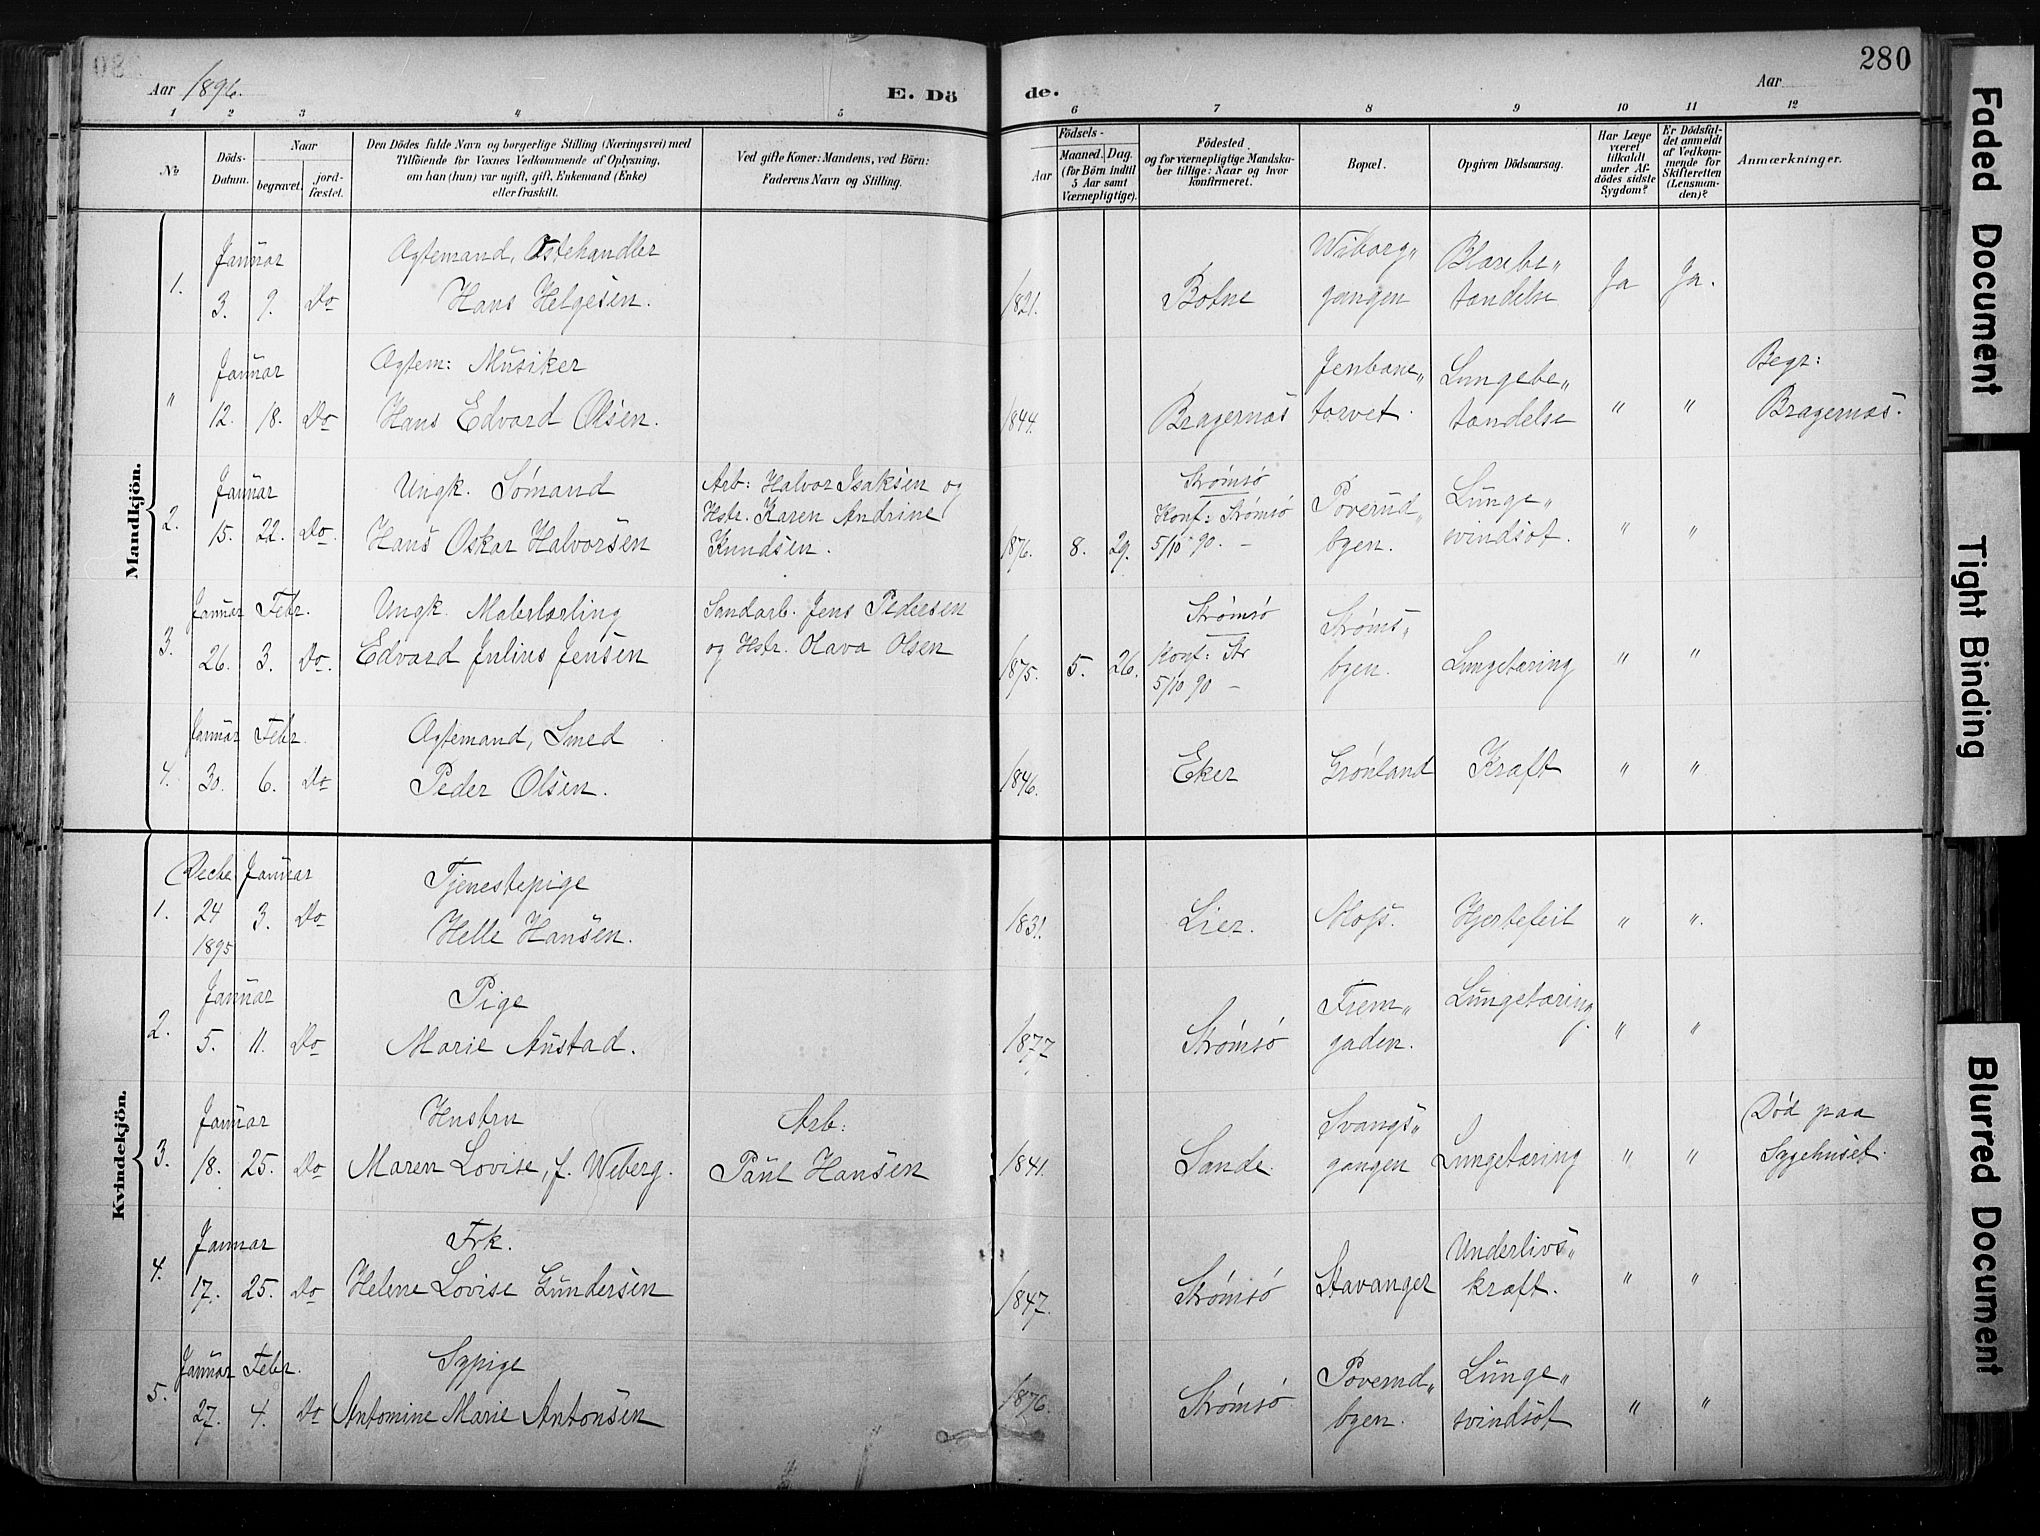 280
Aar 1896.
E. Dö
de.
Aar
1 2 3 4 5 6 7 8 9 10 11 12
No
Döds-Datum.
Naar
begravet.
jord-fæstet.
Den Dödes fulde Navn og borgerlige Stilling (Næringsvei) med
Tilföiende for Voxnes Vedkommende af Oplysning,
om han (hun) var ugift, gift, Enkemand (Enke)
eller fraskilt.
Ved gifte Koner: Mandens, ved Börn:
Faderens Navn og Stilling.
Födsels-
Aar
Maaned. Dag.
(for Börn indtil
5 Aar samt
Værnepligtige).
Födested
og for værnepligtige Mandska-
ber tillige: Naar og hvor
konfirmeret.
Bopæl.
Opgiven Dödsaarsag.
Har Læge
været
tilkaldt
under Af-
dödes sidste
Sygdom?
Er Dödsfal-
det anmeldt
af Vedkom-
mende for
Skifteretten
(Lensman-
den)?
Anmærkninger.
Mandkjön.
Januar Ogtemand, Ostehandler Wiborg„ Blærebe„
1. 3. 9. Do Hans Helgesen. 1821. Botne gangen tændelse Ja Ja.
Januar Ægtem: Musiker Jenbane„ Lungebe„ Begr:
" 12. 18. Do Hans Edvard Olsen. 1844. Bragernæs torvet. tændelse " " Bragernæs.
Januar Ungk. Sømand Arb: Halvor Isaksen og Strømsø Poverud„ Lunge„
Hstr. Karen Andrine Konf: Strømsø
2. 15. 22. Do. Hans Oskar Halvorsen Knudsen. 1876. 8. 29. 5/10 90. – byen. svindsot. " "
Januar Febr. Ungk. Malerlærling Sandarb. Jens Pedersen Strømsø Strøms„
3. 26. 3. Do. Edvard Julius Jensen og Hstr. Olava Olsen 1875. 5. 26. Konf: Str byen. Lungetæring " "
5/10 90 –
Januar Febr. Ægtemand, Smed
4. 30. 6. Do Peder Olsen. 1846. Eker Grønland Kræft " "
Kvindekjön.
Decbr. Januar Tjenestepige
1. 24 3. Do Helle Hansen. 1831. Lier. Moss. Hjertefeil " ".
1895
Januar Pige Frem„ Lungetæring.
2. 5. 11. Do Marie Austad. 1877 Strømsø gaden. " "
Januar Hustru Arb: Svangs„ Død paa
3. 18. 25. Do Maren Lovise, f. Weberg. Paul Hansen 1841. Sande. gangen Lungetæring " " Sygehuset.
Januar Frk. Underlivs„
4. 17. 25. Do Helene Lovise Gundersen 1847. Strømsø Stavanger kræft. " "
Januar Febr. Sypige Poverud„ Lunge„
5. 27. 4. Do Antomine Marie Antonsen 1876. Strømsø byen. svindsot " "
Faded Document
Tight Binding
Blurred Document